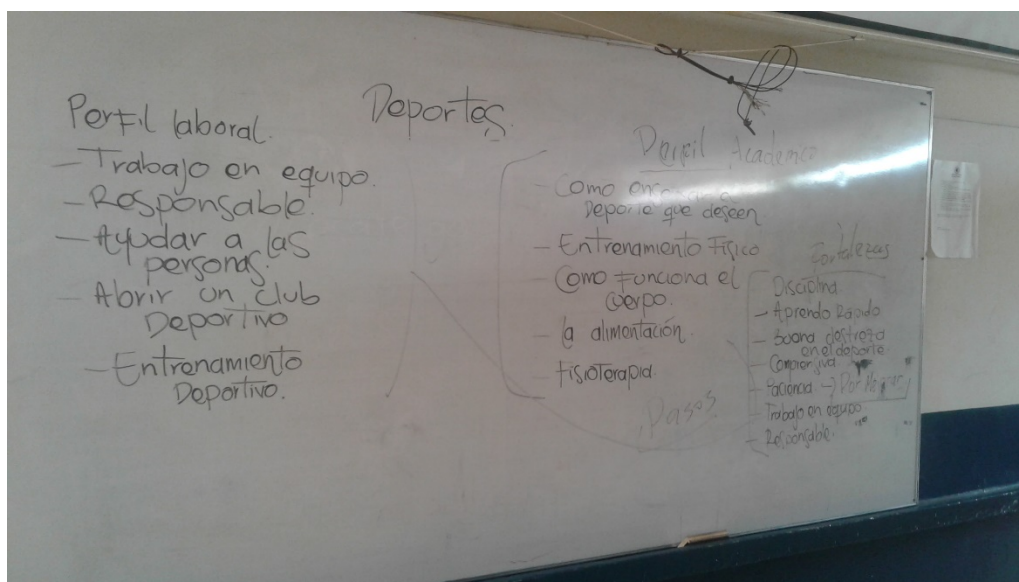 Deportes.
Perfil laboral.
- Trabajo en equipo.
- Responsable.
- Ayudar a las
personas.
- Abrir un club
Deportivo
- Entrenamiento
Deportivo.
Perfil Academico
- Como a
Deporte que deseen
- Entrenamiento Físico
- Como Funciona el
cuerpo.
- la alimentación.
- Fisioterapia.
-
Pasos
Fortalezas
Disciplina.
- Aprendo Rápido
- Buena destreza
en el deporte.
- Compresiva
- Paciencia → Por
- Trabajo en equipo
- Responsable.